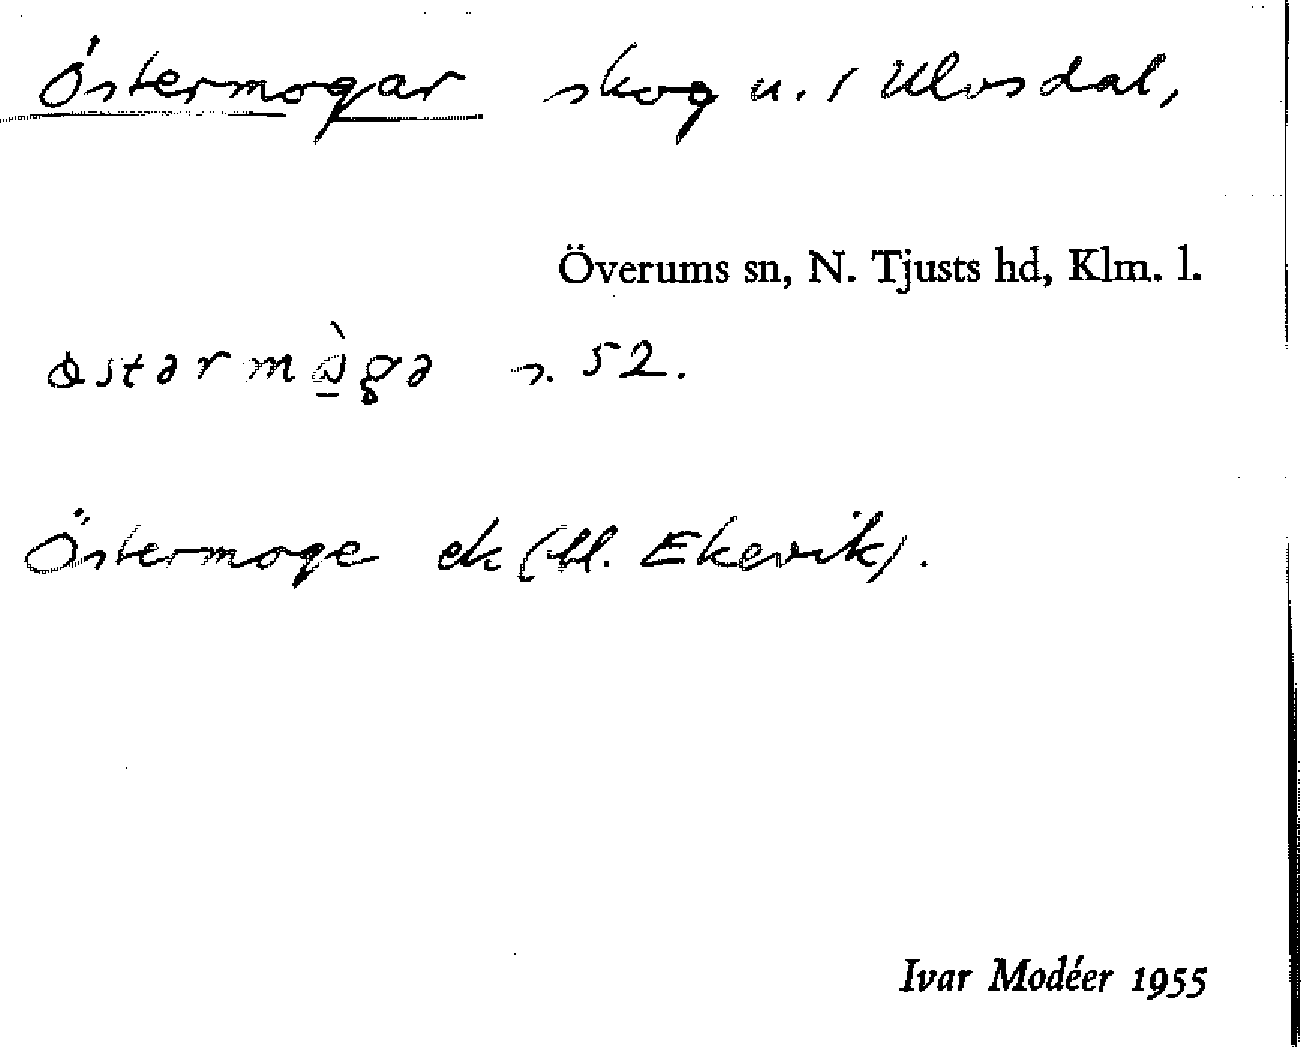 Östermogar skog u. 1 Ulvsdal,
Överums sn, N. Tjusts hd, Klm. l.
s. 52.
Östermoge ek (bl. Ekevik).
Ivar Modéer 1955